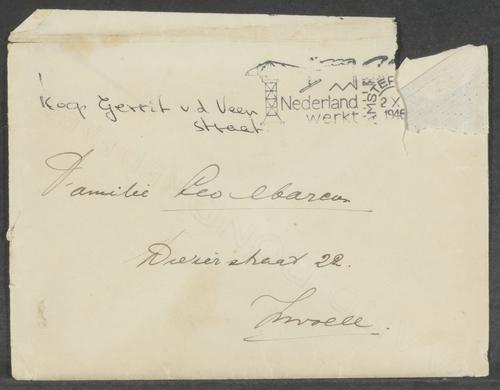 Koop Gerrit v.d Veen
straat
Nederland
werkt
AMSTER
2 X
1946
Familie Leo Marcus
Diezerstraat 22.
Zwolle.